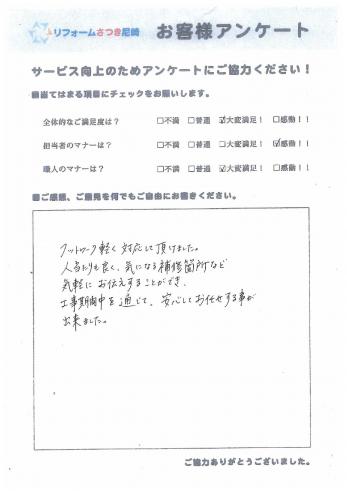 リフォームさつき尼崎 お客様アンケート
サービス向上のためアンケートにご協力ください！
■当てはまる項目にチェックをお願いします。
全体的なご満足度は？ □不満 □普通 ☑大変満足！ □感動！！
担当者のマナーは？ □不満 □普通 □大変満足！ ☑感動！！
職人のマナーは？ □不満 □普通 ☑大変満足！ □感動！！
■ご感想、ご意見を何でもご自由にお書きください。
フットワーク軽く対応して頂けました。
人当たりも良く、気になる補修箇所など
気軽にお伝えすることができ、
工事期間中を通じて、安心してお任せする事が
出来ました。
ご協力ありがとうございました。